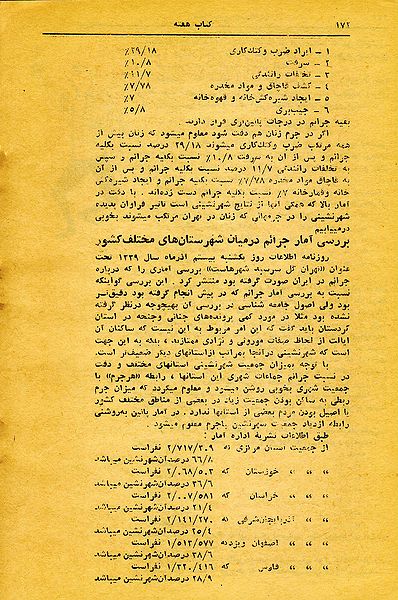 ۱۷۲ کتاب هفته
۱ ـ ایراد ضرب وکتک‌کاری ۲۹/۱۸٪
۲ ـ سرقت ۱۰/۸٪
۳ ـ تخلفات رانندگی ۱۱/۷٪
۴ ـ کشف قاچاق و مواد مخدره ۷/۷۸٪
۵ ـ ایجاد شیره‌کش‌خانه و قهوه‌خانه ۷٪
۶ ـ جیب‌بری ۵/۸٪
بقیه جرائم در درجات پائین‌تری قرار دارند.
اگر در جرم زنان هم دقت شود معلوم میشود که زنان بیش از
همه مرتکب ضرب وکتک‌کاری میشوند ۲۹/۱۸ درصد نسبت بکلیه
جرائم و پس از آن به سرقت ۱۰/۸٪ نسبت بکلیه جرائم و سپس
به تخلفات رانندگی ۱۱/۷ درصد نسبت بکلیه جرائم و پس از آن
به قاچاق مواد مخدره ۷/۷۸٪ نسبت بکلیه جرائم و ایجاد شیره‌کش
خانه وقمارخانه ۷٪ نسبت بکلیه جرائم دست زده‌اند . با دقت در
آمار بالا که همگی آنها از نتایج شهرنشینی است تاثیر فراوان پدیده
شهرنشینی را در جرمهائی که زنان در تهران مرتکب میشوند بخوبی
درمییابیم
بررسی آمار جرائم درمیان شهرستان‌های مختلف‌کشور
روزنامه اطلاعات روز یکشنبه بیستم آذرماه سال ۱۳۳۹ تحت
عنوان «تهران گل سرسبد شهرهاست» بررسی آماری را که درباره
جرائم در ایران صورت گرفته بود منتشر کرد . این بررسی گواینکه
نسبت به بررسی آمار جرائم که در پیش انجام گرفته بود دقیق‌تر
بود ولی اصول جامعه شناسی در بررسی آن بهیچوجه درنظر گرفته
نشده بود مثلا در مورد کمی پرونده‌های جنائی وجنحه در استان
کردستان باید گفت که این امر مربوط به این نیست که ساکنان آن
ایالت از لحاظ صفات موروثی و نژادی ممتازند ، بلکه به این جهت
است که شهرنشینی درآنجا بمراتب ازاستانهای دیگر ضعیف‌تر است.
با توجه بمیزان جمعیت شهرنشینی استانهای مختلف و دقت
در نسبت جرائم جماعات شهری این استانها ، رابطه «هرجرم» با
جمعیت شهری بخوبی روشن میشود و معلوم میگردد که میزان جرم
ربطی به ساکن بودن جمعیت زیاد در بعضی از مناطق مختلف کشور
یا اصیل بودن مردم بعضی از استانها ندارد . در آمار پائین به‌روشنی
رابطه ازدیاد جمعیت شهرنشین باجرم معلوم میشود .
طبق اطلاعات نشریهٔ اداره آمار :
از جمعیت استان مرکزی که ۲/۷۱۷/۳۰۹ نفراست
۶۶/۸ درصدآن‌شهرنشین میباشد
» » » خوزستان که ۲/۰۶۸/۵۰۳ نفراست
۳۶/۶ درصدآن‌شهرنشین میباشد
» » » خراسان که ۲/۰۰۷/۵۸۱ نفراست
۲۱/۴ درصدآن‌شهرنشین میباشد
» » » آذربایجان‌شرقی که ۲/۱۴۱/۲۷۰ نفراست
۲۵/۴ درصدآن‌شهرنشین میباشد
» » » اصفهان ویزدکه ۱/۵۱۳/۵۷۷ نفراست
۳۸/۶ درصدآن‌شهرنشین میباشد
» » » فارس که ۱/۳۲۰/۴۱۶ نفراست
۲۸/۹ درصدآن‌شهرنشین میباشد